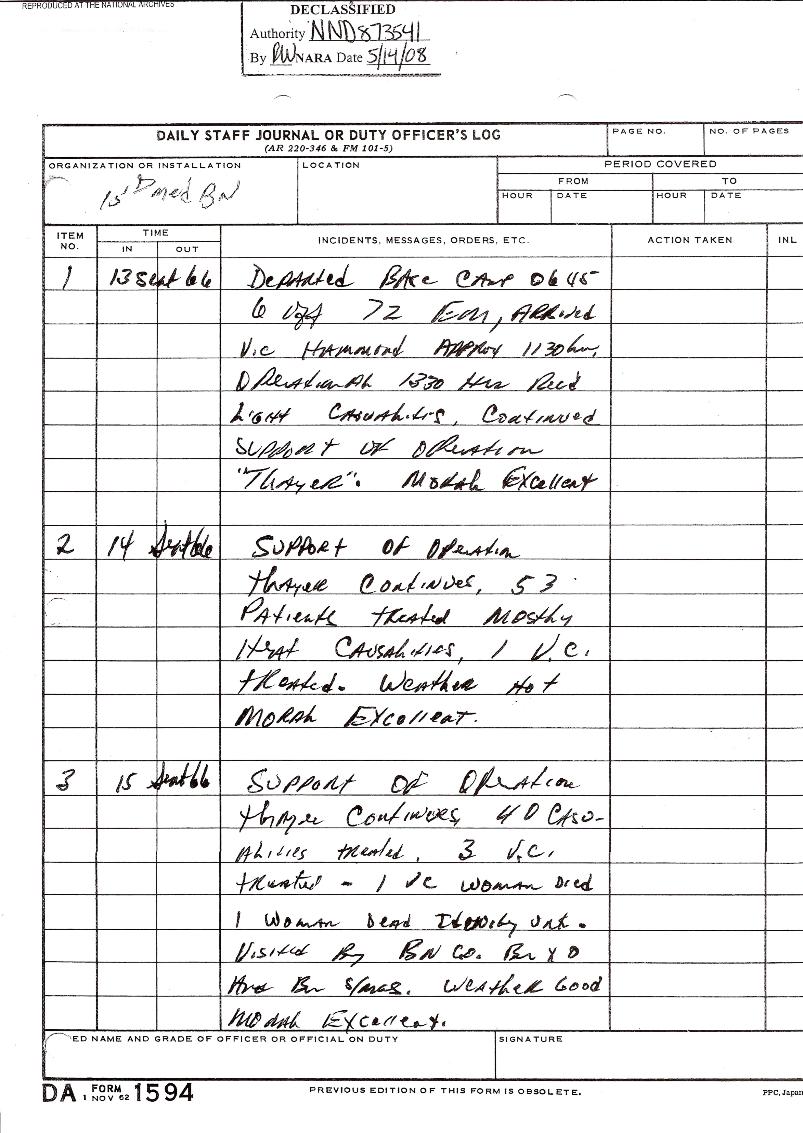 REPRODUCED AT THE NATIONAL ARCHIVES
DECLASSIFIED
Authority NND873541
By NARA Date 5/14/08
DAILY STAFF JOURNAL OR DUTY OFFICER'S LOG
(AR 220-346 & FM 101-5)
PAGE NO.
NO. OF PAGES
ORGANIZATION OR INSTALLATION
15th med BN
LOCATION
PERIOD COVERED
FROM
TO
HOUR
DATE
HOUR
DATE
ITEM NO.
TIME
IN
OUT
INCIDENTS, MESSAGES, ORDERS, ETC.
ACTION TAKEN
INL
1 13 Sept 66 Departed Base Camp 0645
6 72 Em, Arrived
Vic Hammond Approx 1130 hrs,
Operational 1330 Hrs Rec'd
Light Casualities, Continued
Support of Operation
"Thayer". Morale Excellent
2 14 Sept 66 Support of Operation
Thayer Continues, 53
Patients treated Mostly
Heat Causalities, 1 V.C.
treated. Weather Hot
Morale Excellent.
3 15 Sept 66 Support of Operation
Thayer Continues, 40 Casu-
alities treated, 3 V.C.
treated - 1 VC woman Died
1 Woman Dead Identity Unk.
Visited By BN Co. Bn XO
And Bn S/Maj. Weather Good
Morale Excellent.
ED NAME AND GRADE OF OFFICER OR OFFICIAL ON DUTY
SIGNATURE
DA FORM 1 NOV 62 1594
PREVIOUS EDITION OF THIS FORM IS OBSOLETE.
PPC, Japan